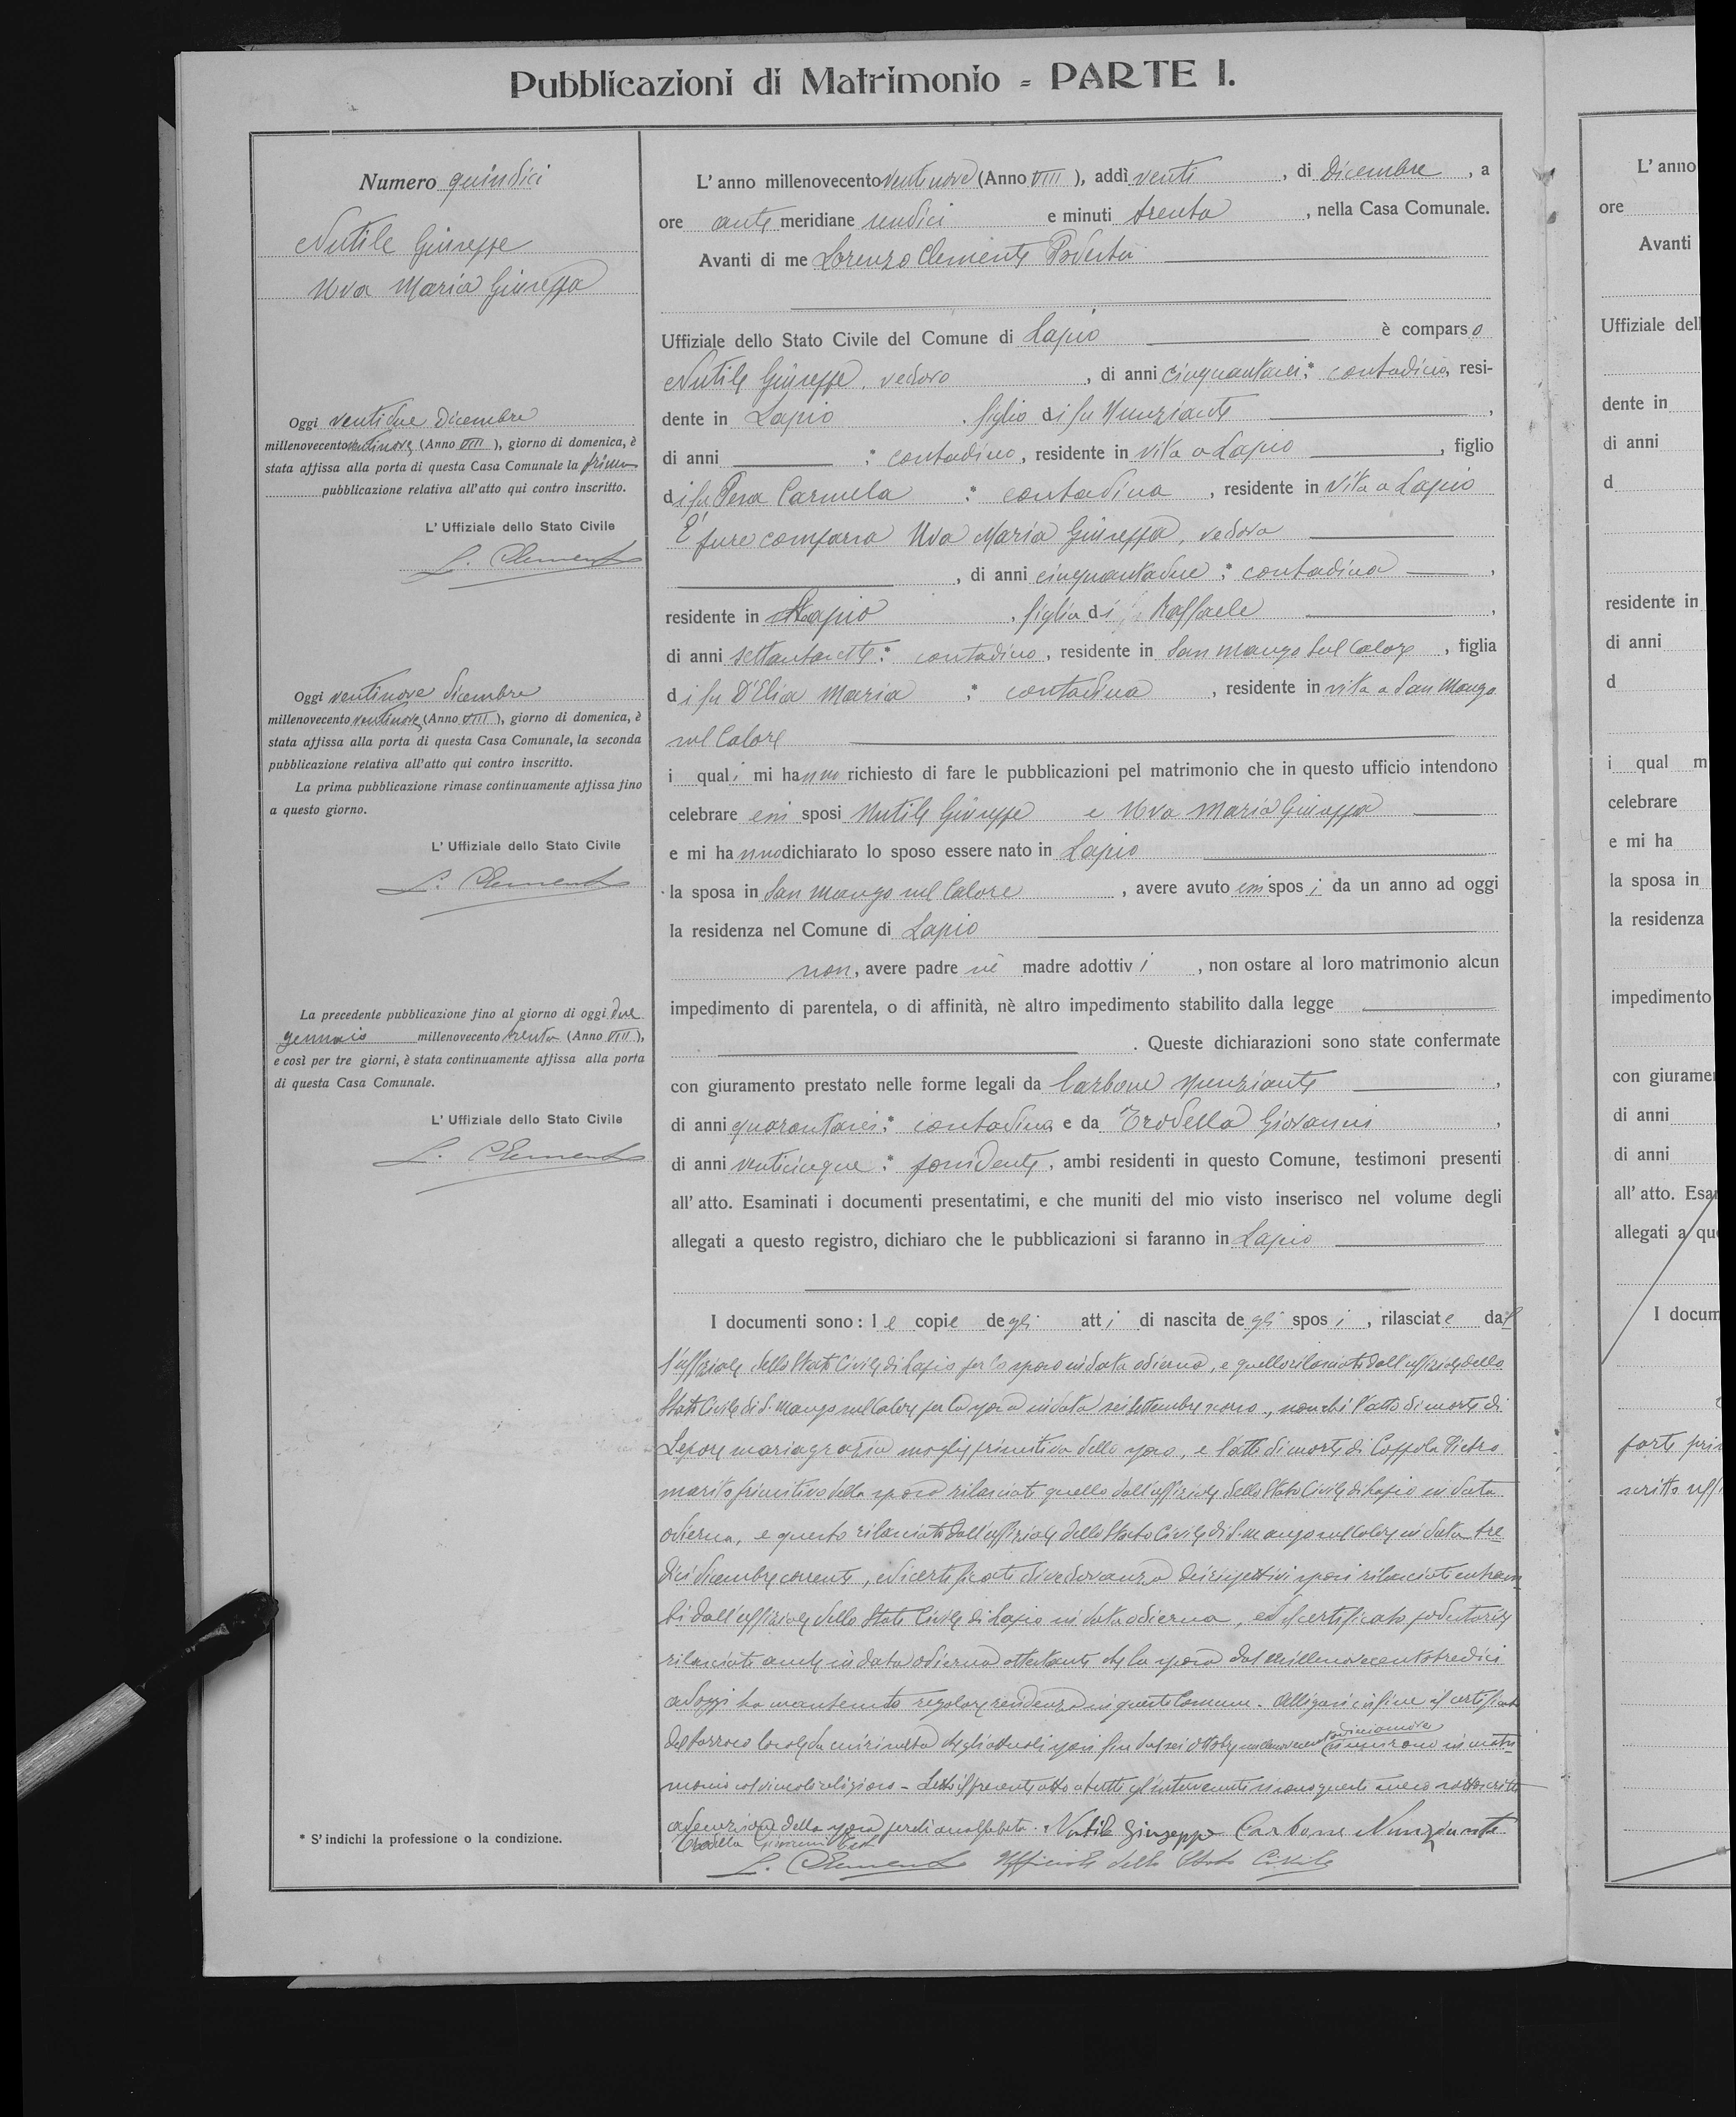 Pubblicazioni di Matrimonio - PARTE I.
Numero quindici
Nutile Giuseppe
Uva Maria Giuseppa
Oggi ventidue Dicembre
millenovecento ventinove (Anno VIII), giorno di domenica, è
stata affissa alla porta di questa Casa Comunale la prima
pubblicazione relativa all'atto qui contro inscritto.
L' Uffiziale dello Stato Civile
L. Clemente
Oggi ventinove dicembre
millenovecento ventinove (Anno VIII), giorno di domenica, è
stata affissa alla porta di questa Casa Comunale, la seconda
pubblicazione relativa all'atto qui contro inscritto.
La prima pubblicazione rimase continuamente affissa fino
a questo giorno.
L' Uffiziale dello Stato Civile
L. Clemente
La precedente pubblicazione fino al giorno di oggi due
gennaio millenovecento trenta (Anno VIII),
e così per tre giorni, è stata continuamente affissa alla porta
di questa Casa Comunale.
L' Uffiziale dello Stato Civile
L. Clemente
* S' indichi la professione o la condizione.
L' anno millenovecento ventinove (Anno VIII), addì venti, di Dicembre, a
ore anti meridiane undici e minuti trenta, nella Casa Comunale.
Avanti di me Lorenzo Clemente Podestà
Uffiziale dello Stato Civile del Comune di Lapio è comparso
Nutile Giuseppe, vedovo, di anni cinquantasei * contadino, resi-
dente in Lapio, figlio di fu Nunziante,
di anni : contadino, residente in vita a Lapio, figlio
di fu Pera Carmela * contadina, residente in vita a Lapio
E' pure comparsa Uva Maria Giuseppa, vedova
, di anni cinquantadue * contadina,
residente in Lapio, figlia di Raffaele,
di anni settantasette * contadino, residente in San Mango sul Calore, figlia
di fu D'Elia Maria * contadina, residente in vita a San Mango
sul Calore
i quali mi hanno richiesto di fare le pubblicazioni pel matrimonio che in questo ufficio intendono
celebrare essi sposi Nutile Giuseppe e Uva Maria Giuseppa
e mi hanno dichiarato lo sposo essere nato in Lapio
la sposa in San Mango sul Calore, avere avuto essi sposi da un anno ad oggi
la residenza nel Comune di Lapio
non, avere padre nè madre adottivi, non ostare al loro matrimonio alcun
impedimento di parentela, o di affinità, nè altro impedimento stabilito dalla legge
. Queste dichiarazioni sono state confermate
con giuramento prestato nelle forme legali da Carbone Nunziante,
di anni quarantasei * contadino e da Trodella Giovanni,
di anni venticinque * possidente, ambi residenti in questo Comune, testimoni presenti
all' atto. Esaminati i documenti presentatimi, e che muniti del mio visto inserisco nel volume degli
allegati a questo registro, dichiaro che le pubblicazioni si faranno in Lapio
I documenti sono: le copie degli atti di nascita degli sposi, rilasciate dal
l'uffiziale dello Stato Civile di Lapio per lo sposo in data odierna, e quello rilasciato dall'uffiziale dello
Stato Civile di S. Mango sul Calore per la sposa in data sei settembre scorso, nonchè l'atto di morte di
Lepore Mariagrazia moglie primitiva dello sposo, e l'atto di morte di Coppola Pietro
marito primitivo della sposa rilasciati quello dall'uffiziale dello Stato Civile di Lapio in data
odierna, e questo rilasciato dall'uffiziale dello Stato Civile di S. Mango sul Calore in data tre
dici dicembre corrente, ed i certificati di vedovanza dei rispettivi sposi rilasciati entram
bi dall'uffiziale dello Stato Civile di Lapio in data odierna, ed il certificato podestarile
rilasciato anche in data odierna attestante che la sposa dal millenovecentotredici
ad oggi ha mantenuto regolare residenza in questo Comune. Alligasi infine il certificato
del Parroco locale da cui risulta che gli attuali sposi fin dal sei ottobre millenovecentodiciannove si unirono in matri
monio col vincolo religioso - Letto il presente atto a tutti gl'intervenuti si sono questi meco sottoscritti
ad eccezione della sposa perchè analfabeta. Nutile Giuseppe Carbone Nunziante
Trodella Giovanni test.
L. Clemente Ufficiale dello Stato Civile
L' anno
ore
Avanti
Uffiziale dell
dente in
di anni
d
residente in
di anni
d
i qual m
celebrare
e mi ha
la sposa in
la residenza
impedimento
con giuramen
di anni
di anni
all' atto. Esa
allegati a qu
I docum